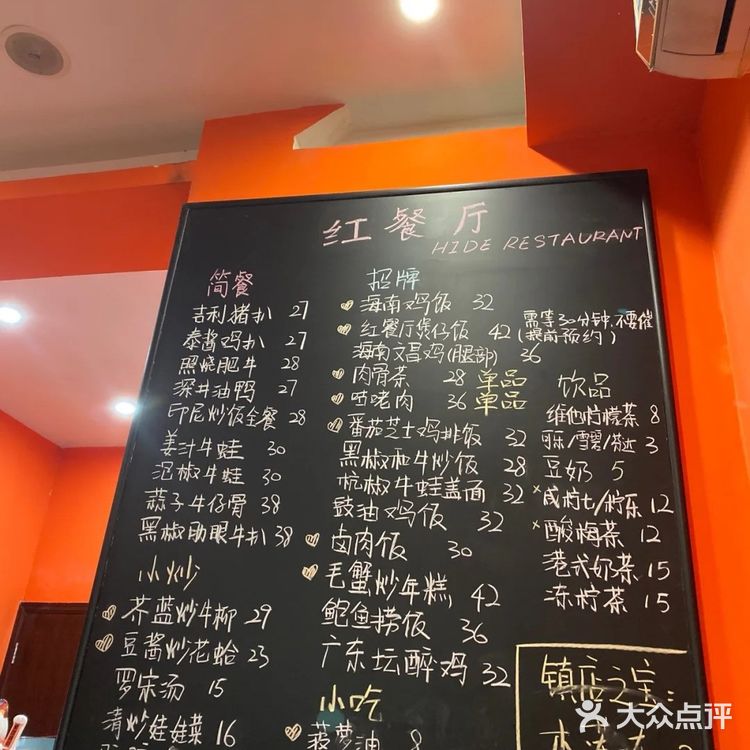 红餐厅
HIDE RESTAURANT
简餐
吉利猪扒 27
泰酱鸡扒 27
照烧肥牛 28
深井油鸭 27
印尼炒饭全餐 28
姜汁牛蛙 30
泡椒牛蛙 30
蒜子牛仔骨 38
黑椒肋眼牛扒 38
小炒
芥蓝炒牛柳 29
豆酱炒花蛤 23
罗宋汤 15
清炒娃娃菜 16
招牌
海南鸡饭 32
红餐厅煲仔饭 42 (需等30分钟,不要催 提前预约)
海南文昌鸡(腿部) 36
肉骨茶 28 单品
咕咾肉 36 单品
番茄芝士鸡排饭 32
黑椒和牛炒饭 28
杭椒牛蛙盖面 32
豉油鸡饭 32
卤肉饭 30
毛蟹炒年糕 42
鲍鱼捞饭 36
广东坛醉鸡 32
小吃
菠萝油 8
饮品
维他柠檬茶 8
可乐/雪碧/芬达 3
豆奶 5
咸柠七/柠乐 12
酸梅茶 12
港式奶茶 15
冻柠茶 15
镇店之宝:
大众点评